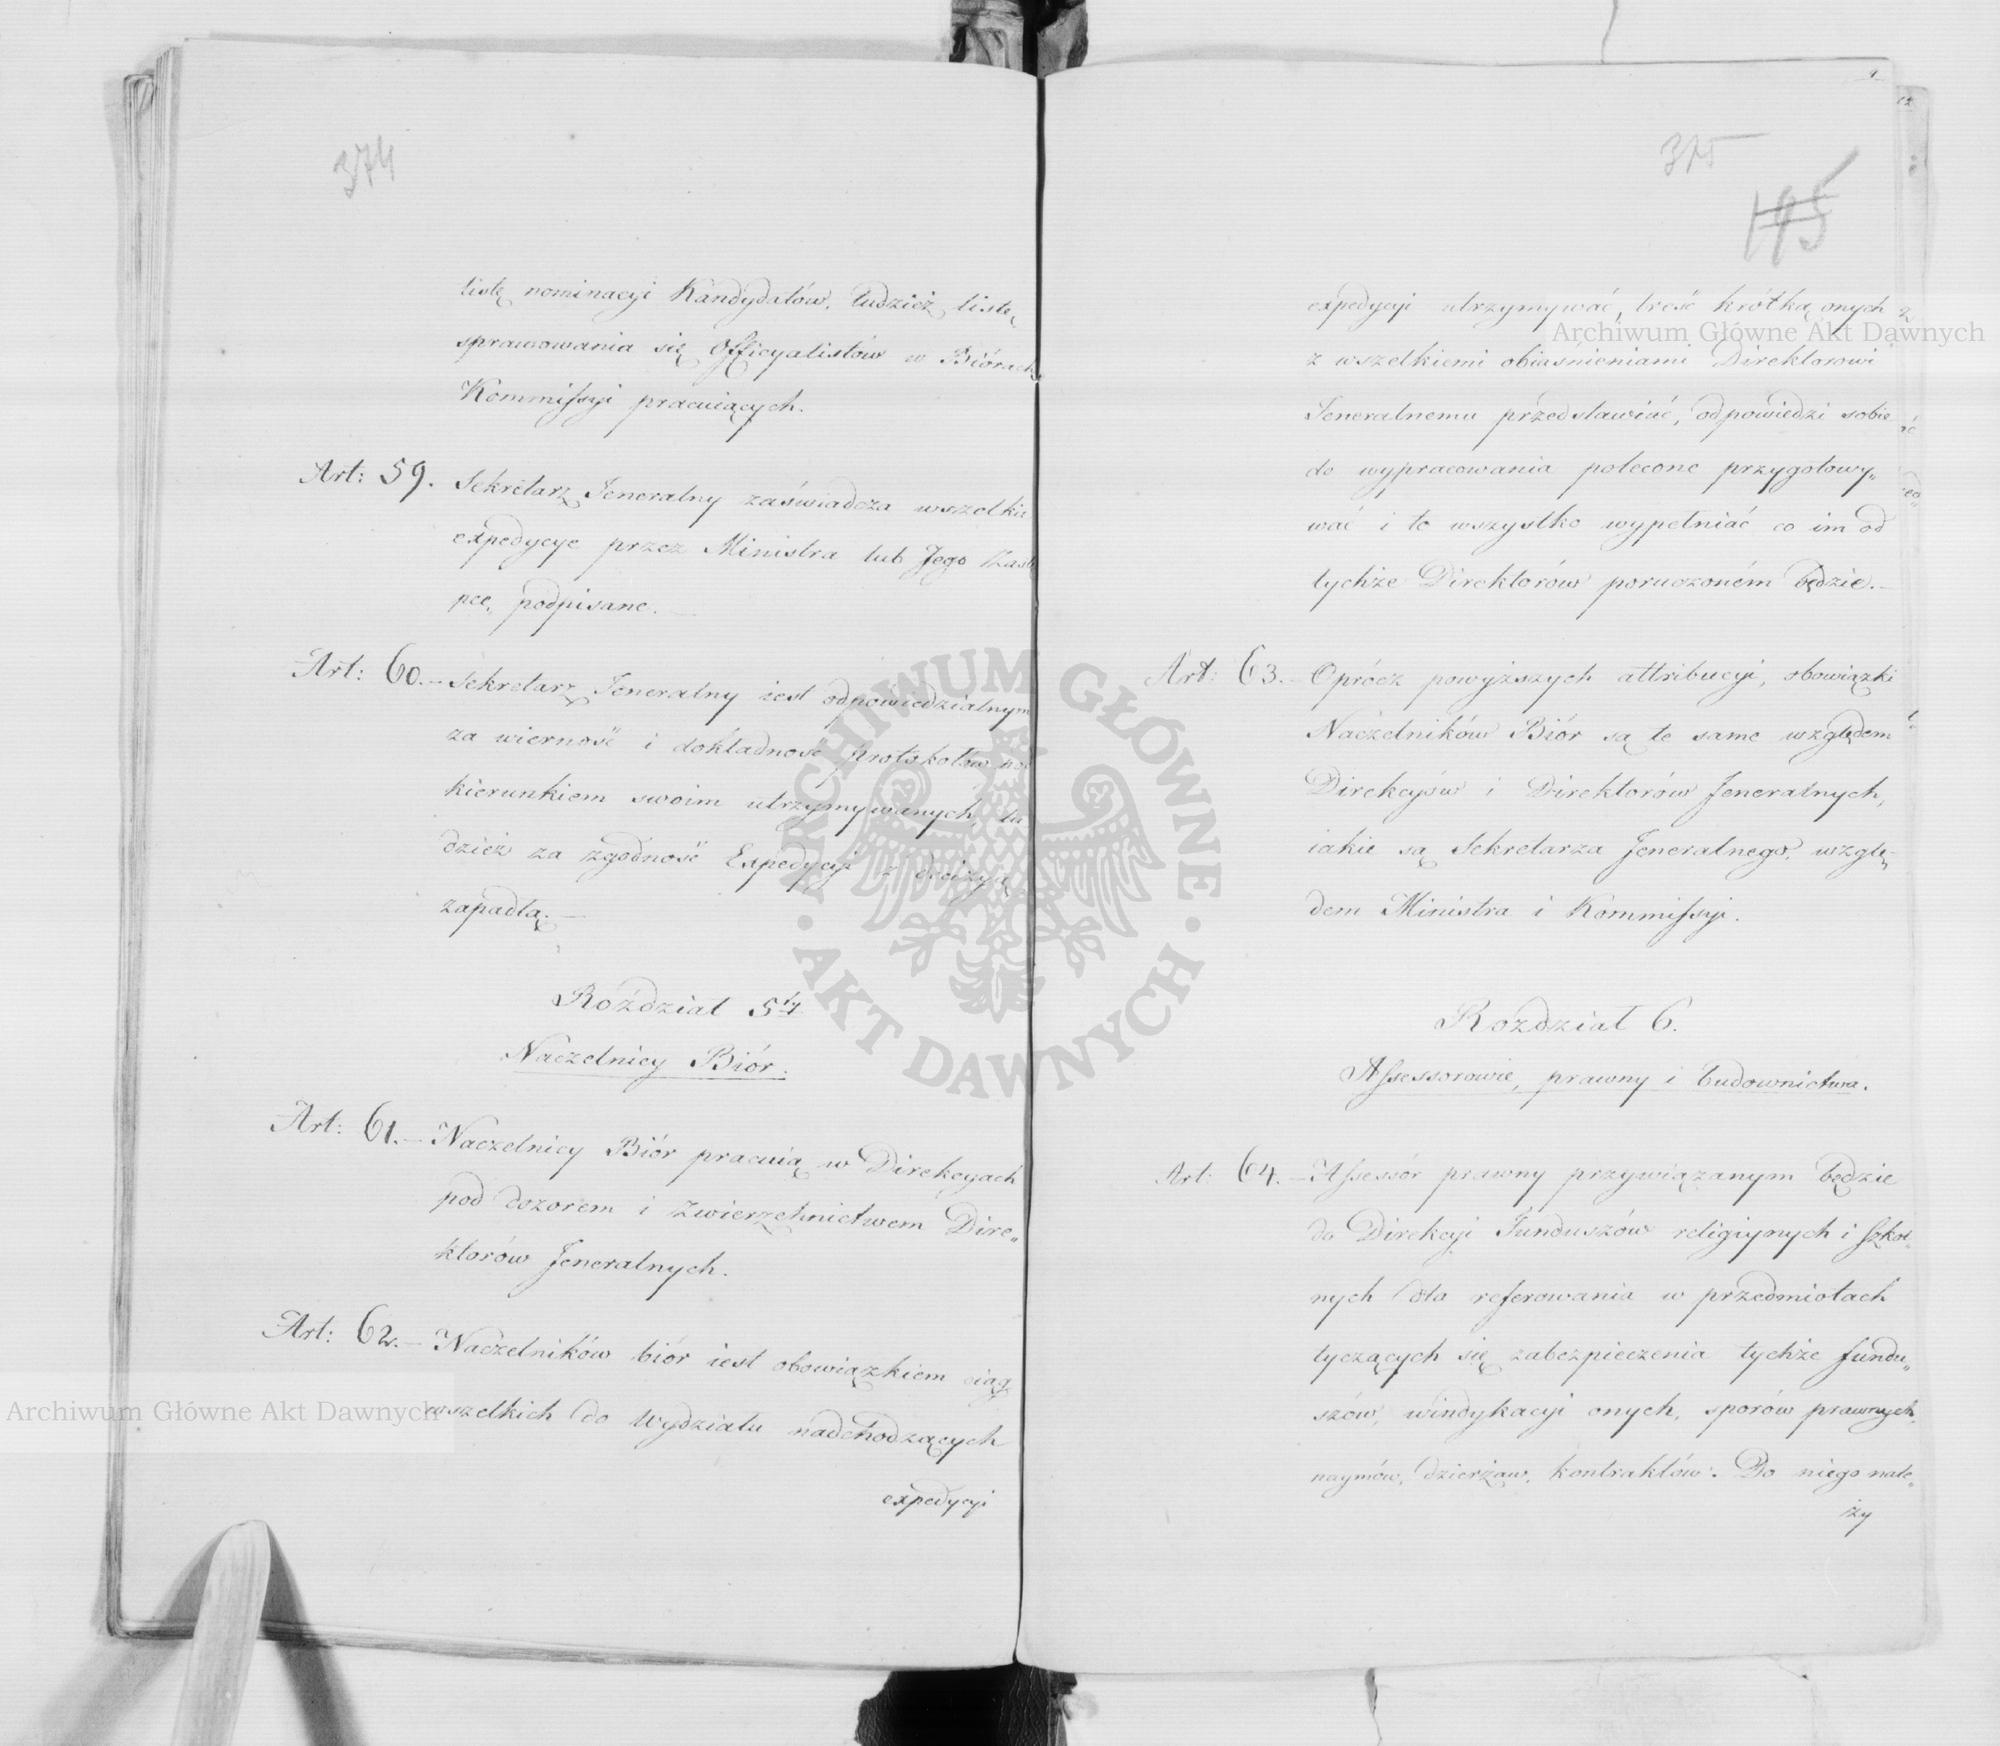 374
listę nominacyi Kandydatów, tudzież listę
sprawowania się Officyalistów w Biórach
Kommissyi pracuiących.
Art: 59. Sekretarz Jeneralny zaświadcza wszelkie
expedycye przez Ministra lub Jego Zastę
pcę, podpisane. —
Art: 60. — Sekretarz Jeneralny iest odpowiedzialnym
za wierność i dokładność protokołów pod
kierunkiem swoim utrzymywanych, tu
dzież za zgodność Expedycyi z decizyą
zapadłą. —
Rozdział 5ty
Naczelnicy Biór.
Art: 61. — Naczelnicy Biór pracuią w Direkcyach
pod dozorem i Zwierzchnictwem Dire„
ktorów Jeneralnych.
Art: 62. — Naczelników biór iest obowiązkiem ciąg
wszelkich do Wydziału nadchodzących
expedycyi
375
195
expedycyi utrzymywać, treść krótką onych
z wszelkiemi obiaśnieniami Direktorowi
Jeneralnemu przedstawiać, odpowiedzi sobie
do wypracowania polecone przygotowy„
wać i to wszystko wypełniać co im od
tychże Direktorów poruczoném będzie. —
Art: 63. — Oprócz powyższych attribucyi, obowiązki
Naczelników Biór są te same względem
Direkcyów i Direktorów Jeneralnych,
iakie są Sekretarza Jeneralnego, wzglę„
dem Ministra i Kommissyi.
Rozdział 6.
Assessorowie, prawny i budownictwa.
Art: 64. — Assessór prawny przywiązanym będzie
do Direkcyi Funduszów religiynych i szkol„
nych dla referowania w przedmiotach
tyczących się zabezpieczenia tychże fundu„
szów, windykacyi onych, sporów prawnych,
naymów, dzierżaw, kontraktów. Do niego nale„
ży
Archiwum Główne Akt Dawnych
Archiwum Główne Akt Dawnych
ARCHIWUM GŁÓWNE · AKT DAWNYCH ·